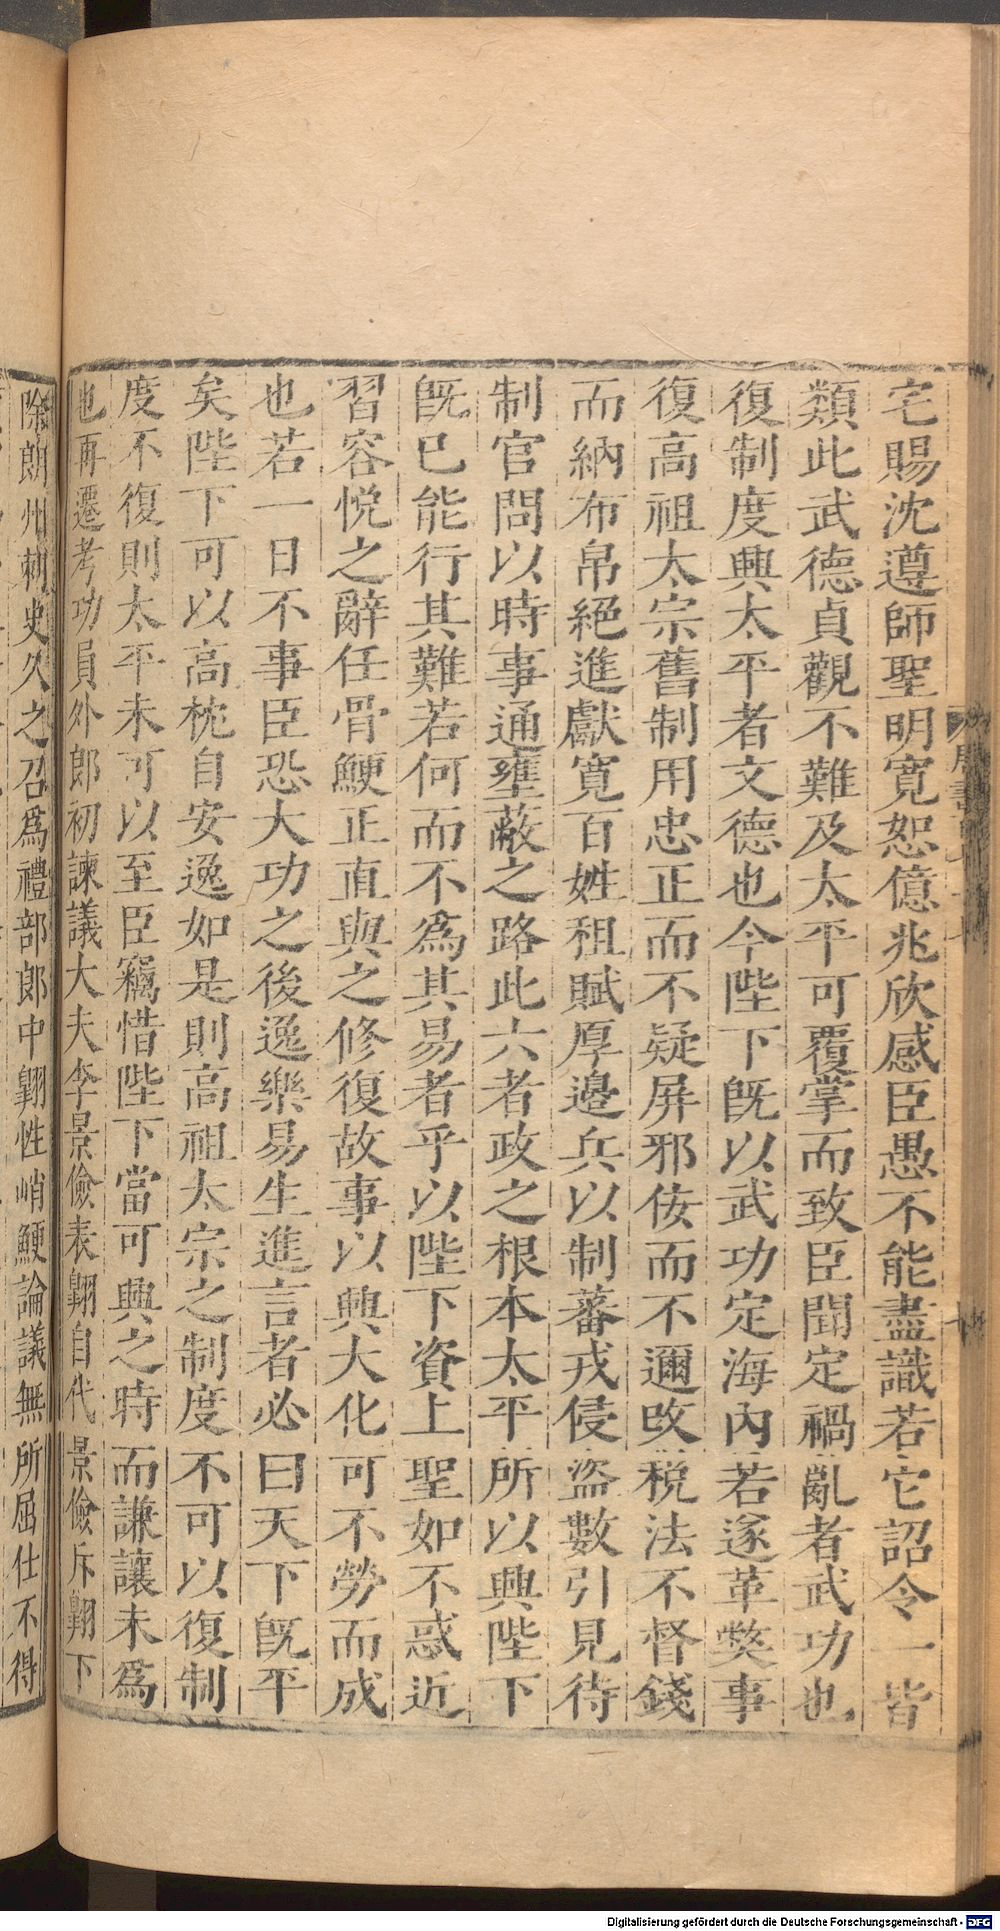 宅賜沈遵師聖明寬恕億兆欣感臣愚不能盡識若它詔令一皆
類此武德貞觀不難及太平可覆掌而致臣聞定禍亂者武功也
復制度興太平者文德也今陛下旣以武功定海內若遂革獘事
復高祖太宗舊制用忠正而不疑屏邪佞而不邇改稅法不督錢
而納布帛絕進獻寬百姓租賦厚邊兵以制蕃戎侵盜數引見待
制官問以時事通壅蔽之路此六者政之根本太平所以興陛下
旣已能行其難若何而不爲其易者乎以陛下資上聖如不惑近
習容悅之辭任骨鯁正直與之修復故事以興大化可不勞而成
也若一日不事臣恐大功之後逸樂易生進言者必曰天下旣平
矣陛下可以高枕自安逸如是則高祖太宗之制度不可以復制
度不復則太平未可以至臣竊惜陛下當可興之時而謙讓未爲
也再遷考功員外郎初諫議大夫李景儉表翺自代景儉斥翺下
除朗州刺史久之召爲禮部郎中翺性峭鯁論議無所屈仕不得
Digitalisierung gefördert durch die Deutsche Forschungsgemeinschaft - DFG